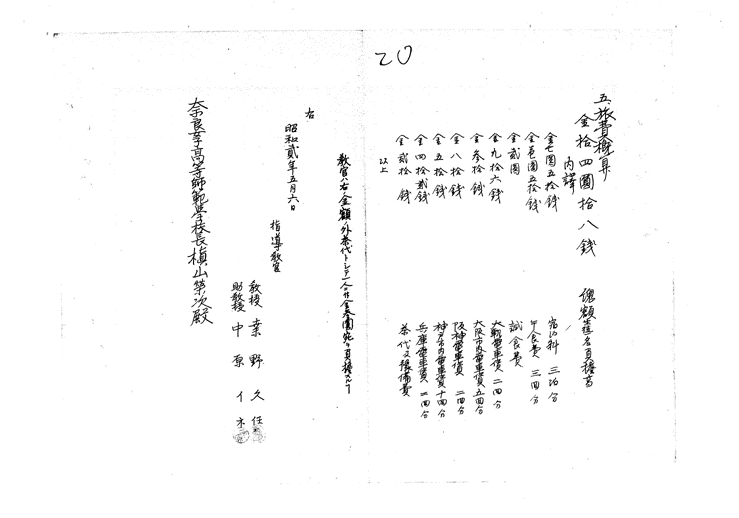 20
五、旅費概算
金拾四圓拾八銭
内譯
金七圓五拾銭 宿泊料 三泊分
金壱圓五拾銭 中食費 三回分
金貳圓 試食費
金九拾六銭 大軌電車賃 二回分
金参拾銭 大阪市内電車賃五回分
金八拾銭 阪神電車賃 二回分
金五拾銭 神戸市内電車賃十回分
金四拾貳銭 兵庫電車賃 二回分
金貳拾銭 茶代又豫備費
以上
教官ハ右金額ノ外茶代トシテ一人ニ付金壱圓宛
右
昭和貳年五月六日
指導教官
教授 野久
助教授 中原イネ
奈良女子高等師範学校長槙山榮次殿